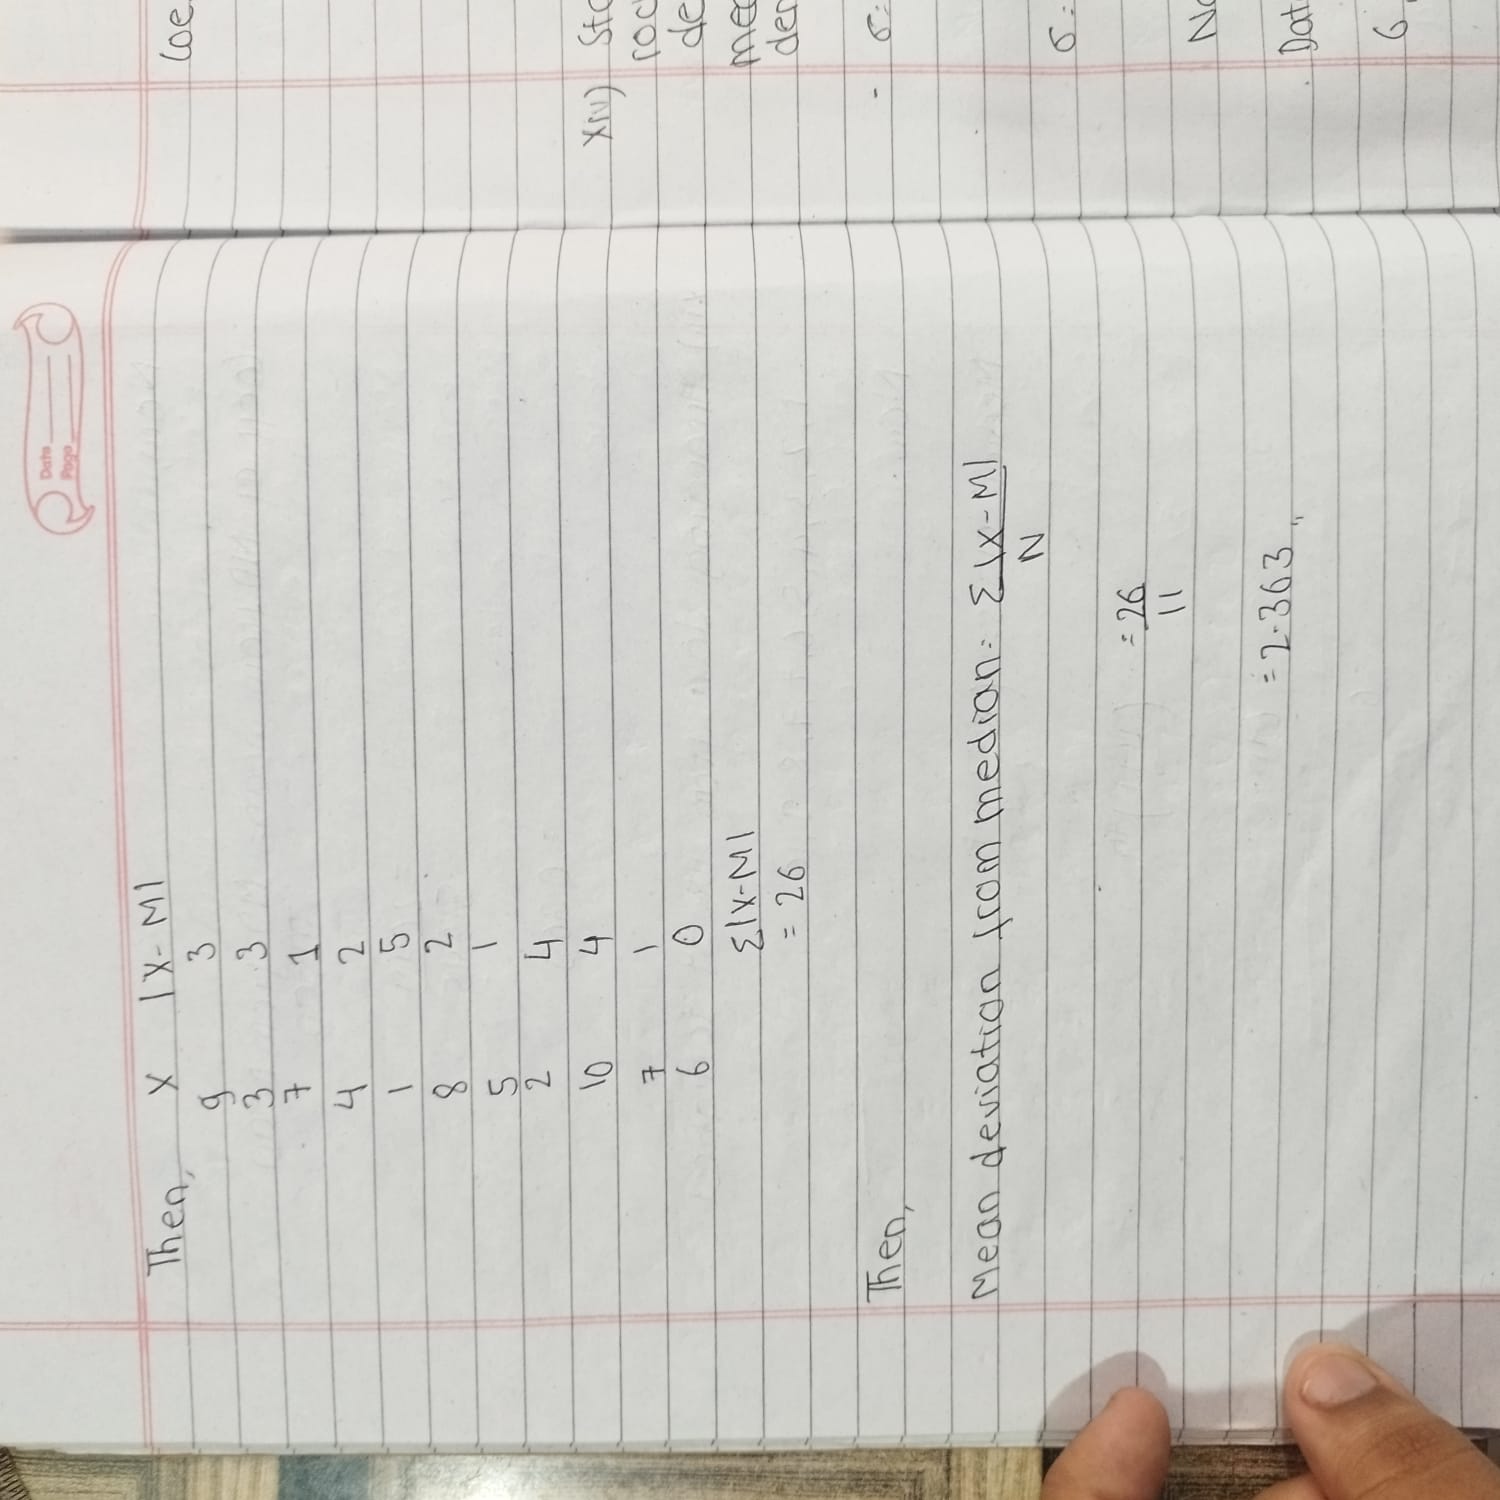 Date
Page
Then, X |X-M|
9 3
3 3
7 1
4 2
1 5
8 2
5 1
2 4
10 4
7 1
6 0
Σ|X-M|
= 26
Then,
Mean deviation from median = Σ|X-M|
N
= 26
11
= 2.363
xiv)
σ=
σ=
6